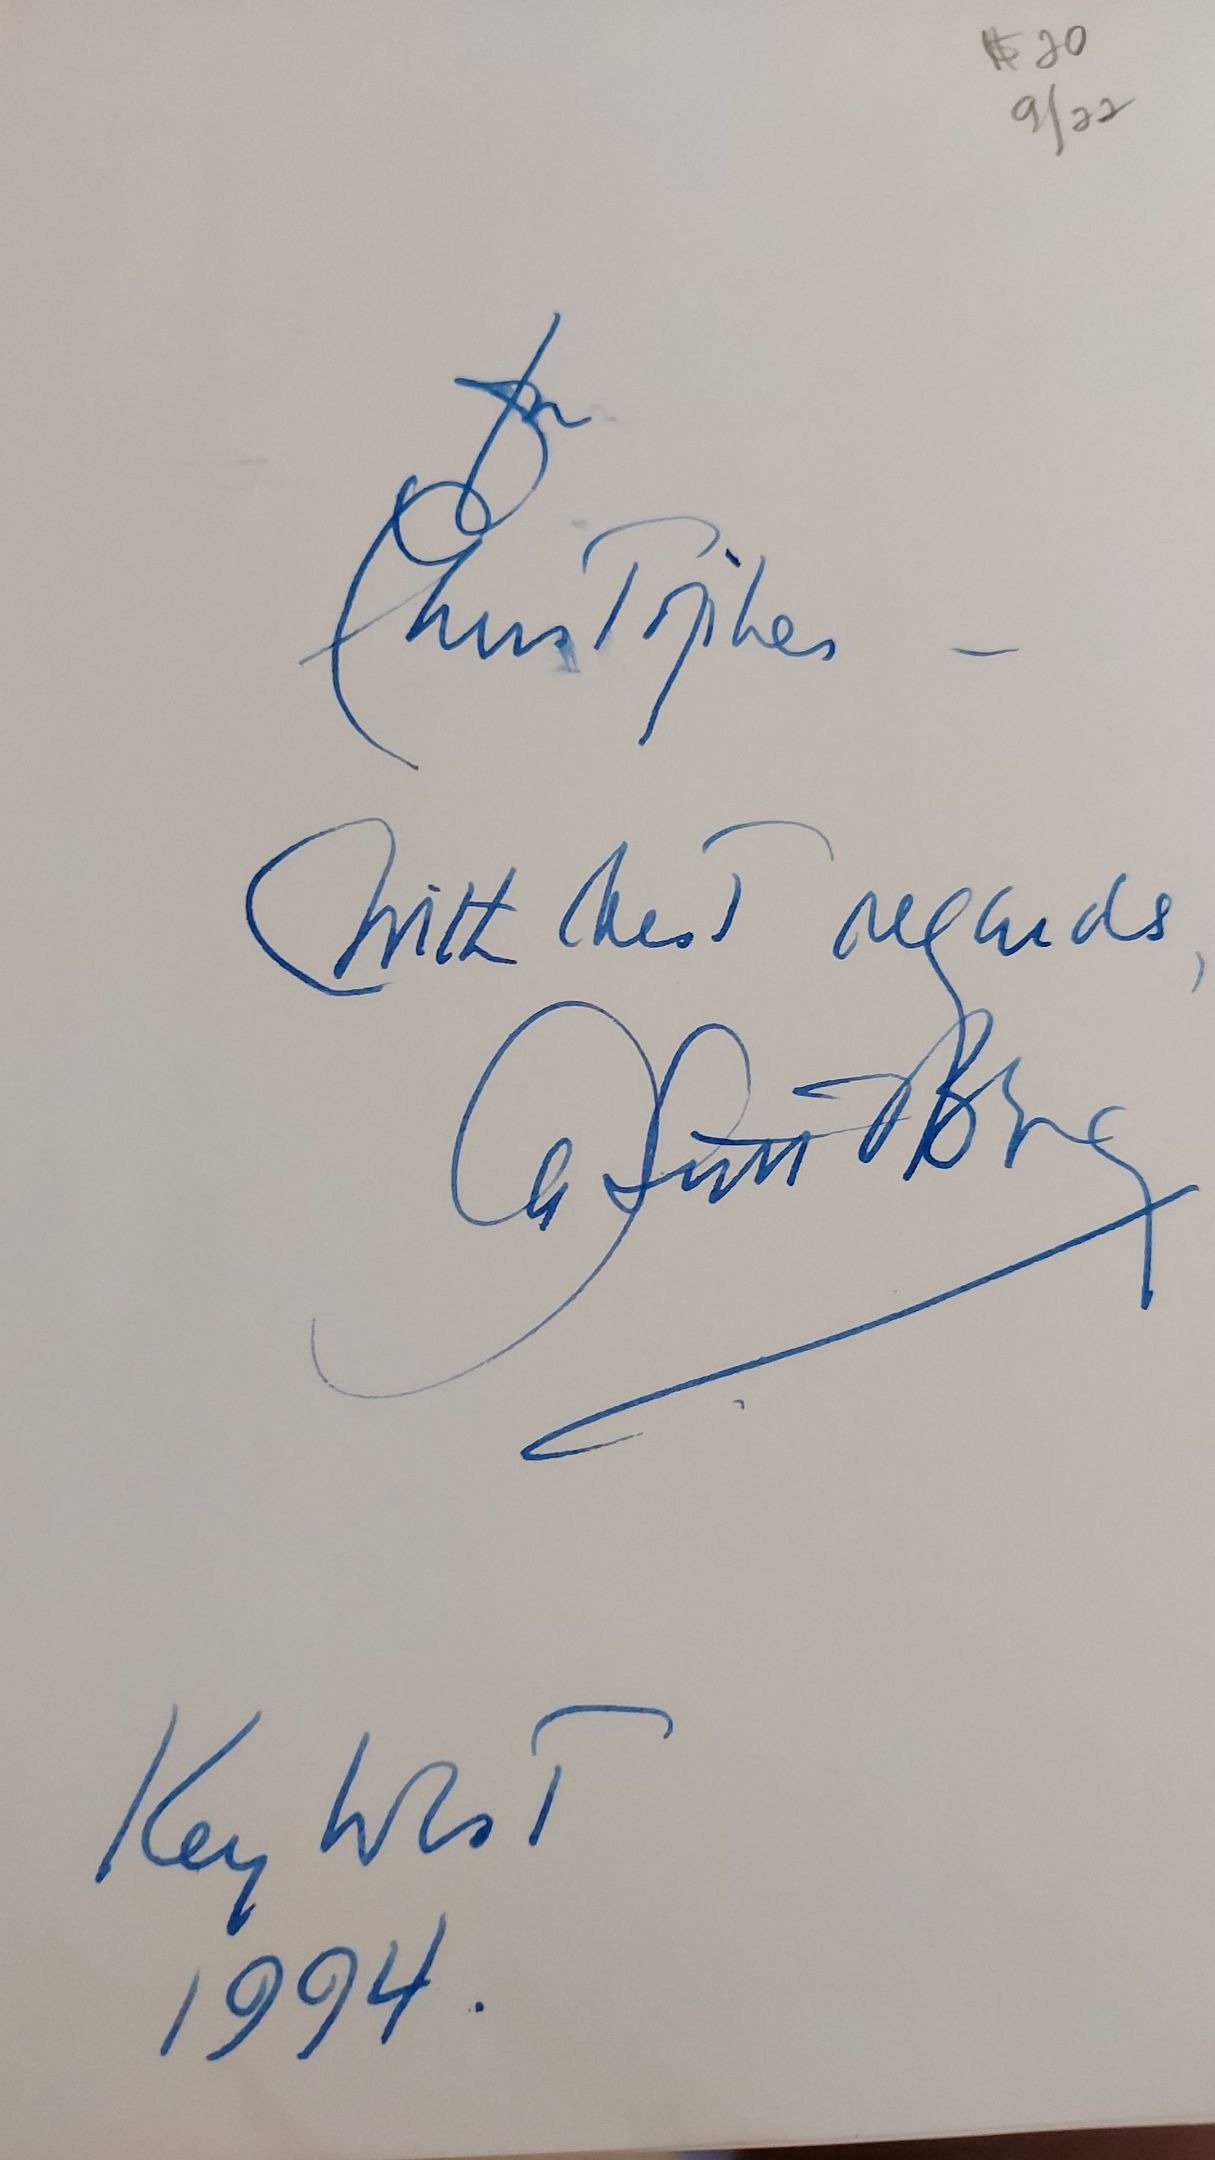 $20
9/22
for
Christopher –
with best regards,
Key West
1994.